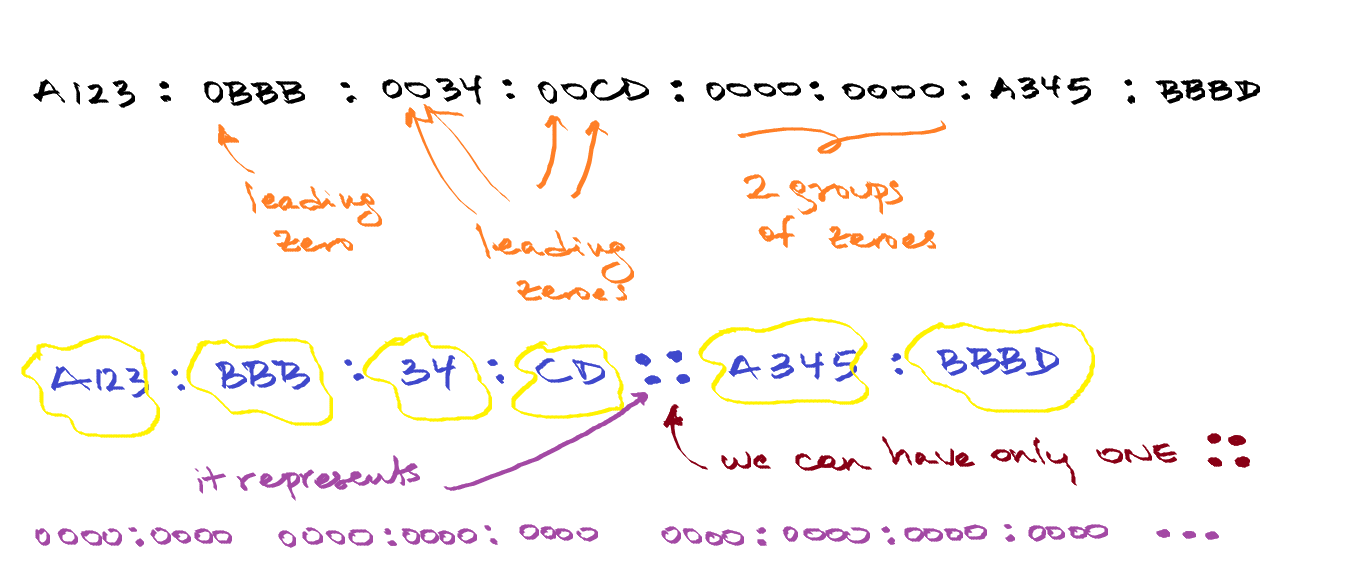 A123 : 0BBB : 0034 : 00CD : 0000 : 0000 : A345 : BBBD
leading
zero
leading
zeroes
2 groups
of zeroes
A123 : BBB : 34 : CD :: A345 : BBBD
it represents
we can have only ONE ::
0000:0000 0000:0000:0000 0000:0000:0000:0000 ...